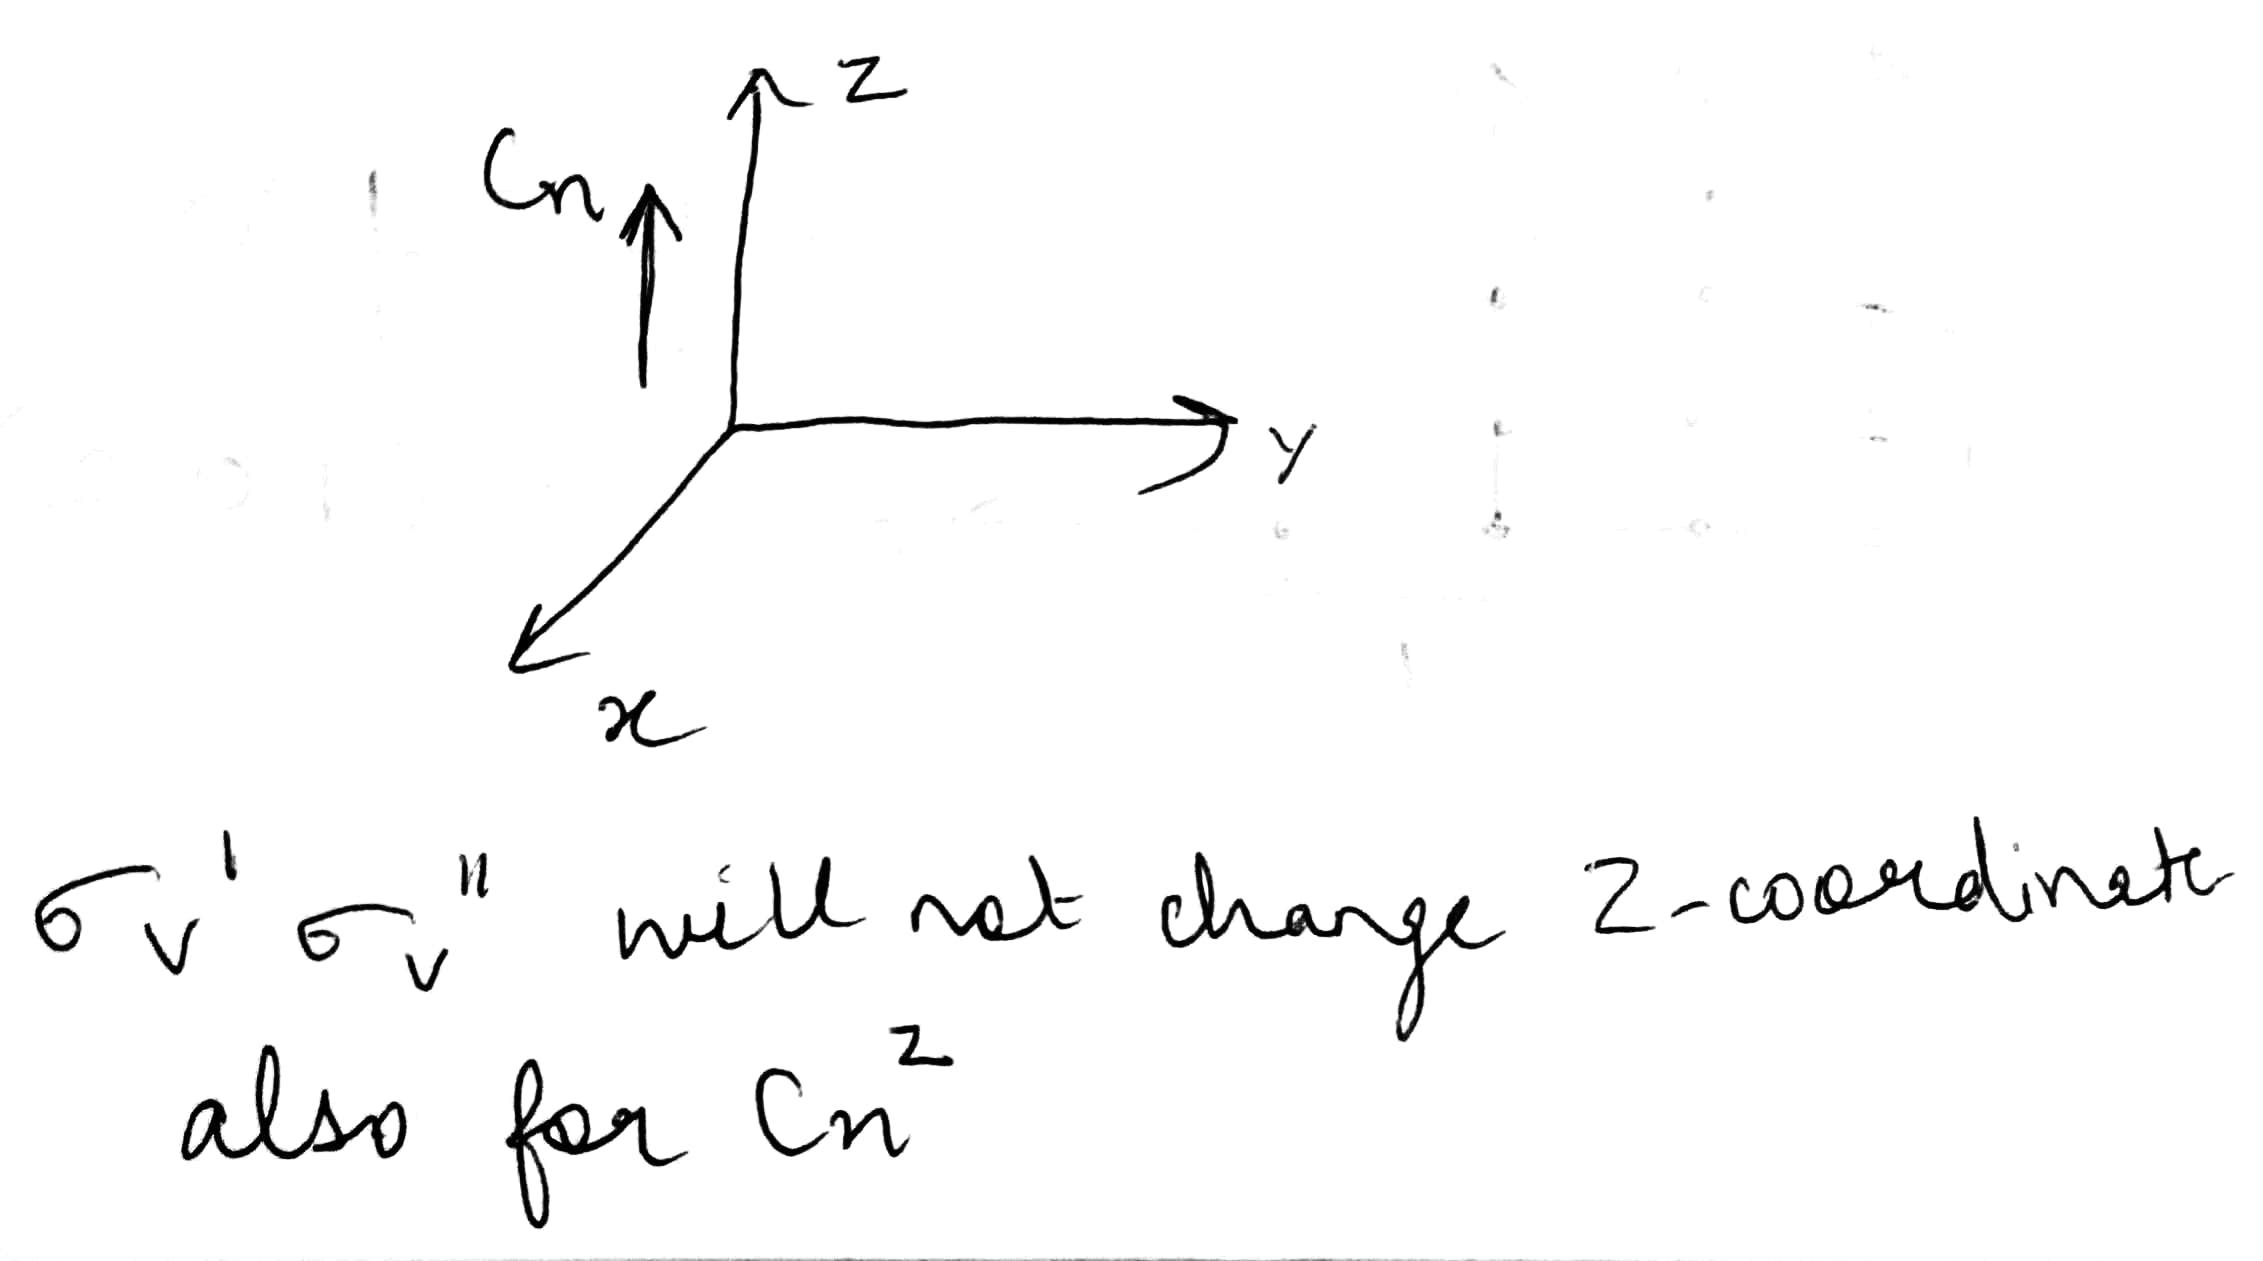 z
Cn
y
x
σv' σv" will not change Z-coordinate
also for Cn^z